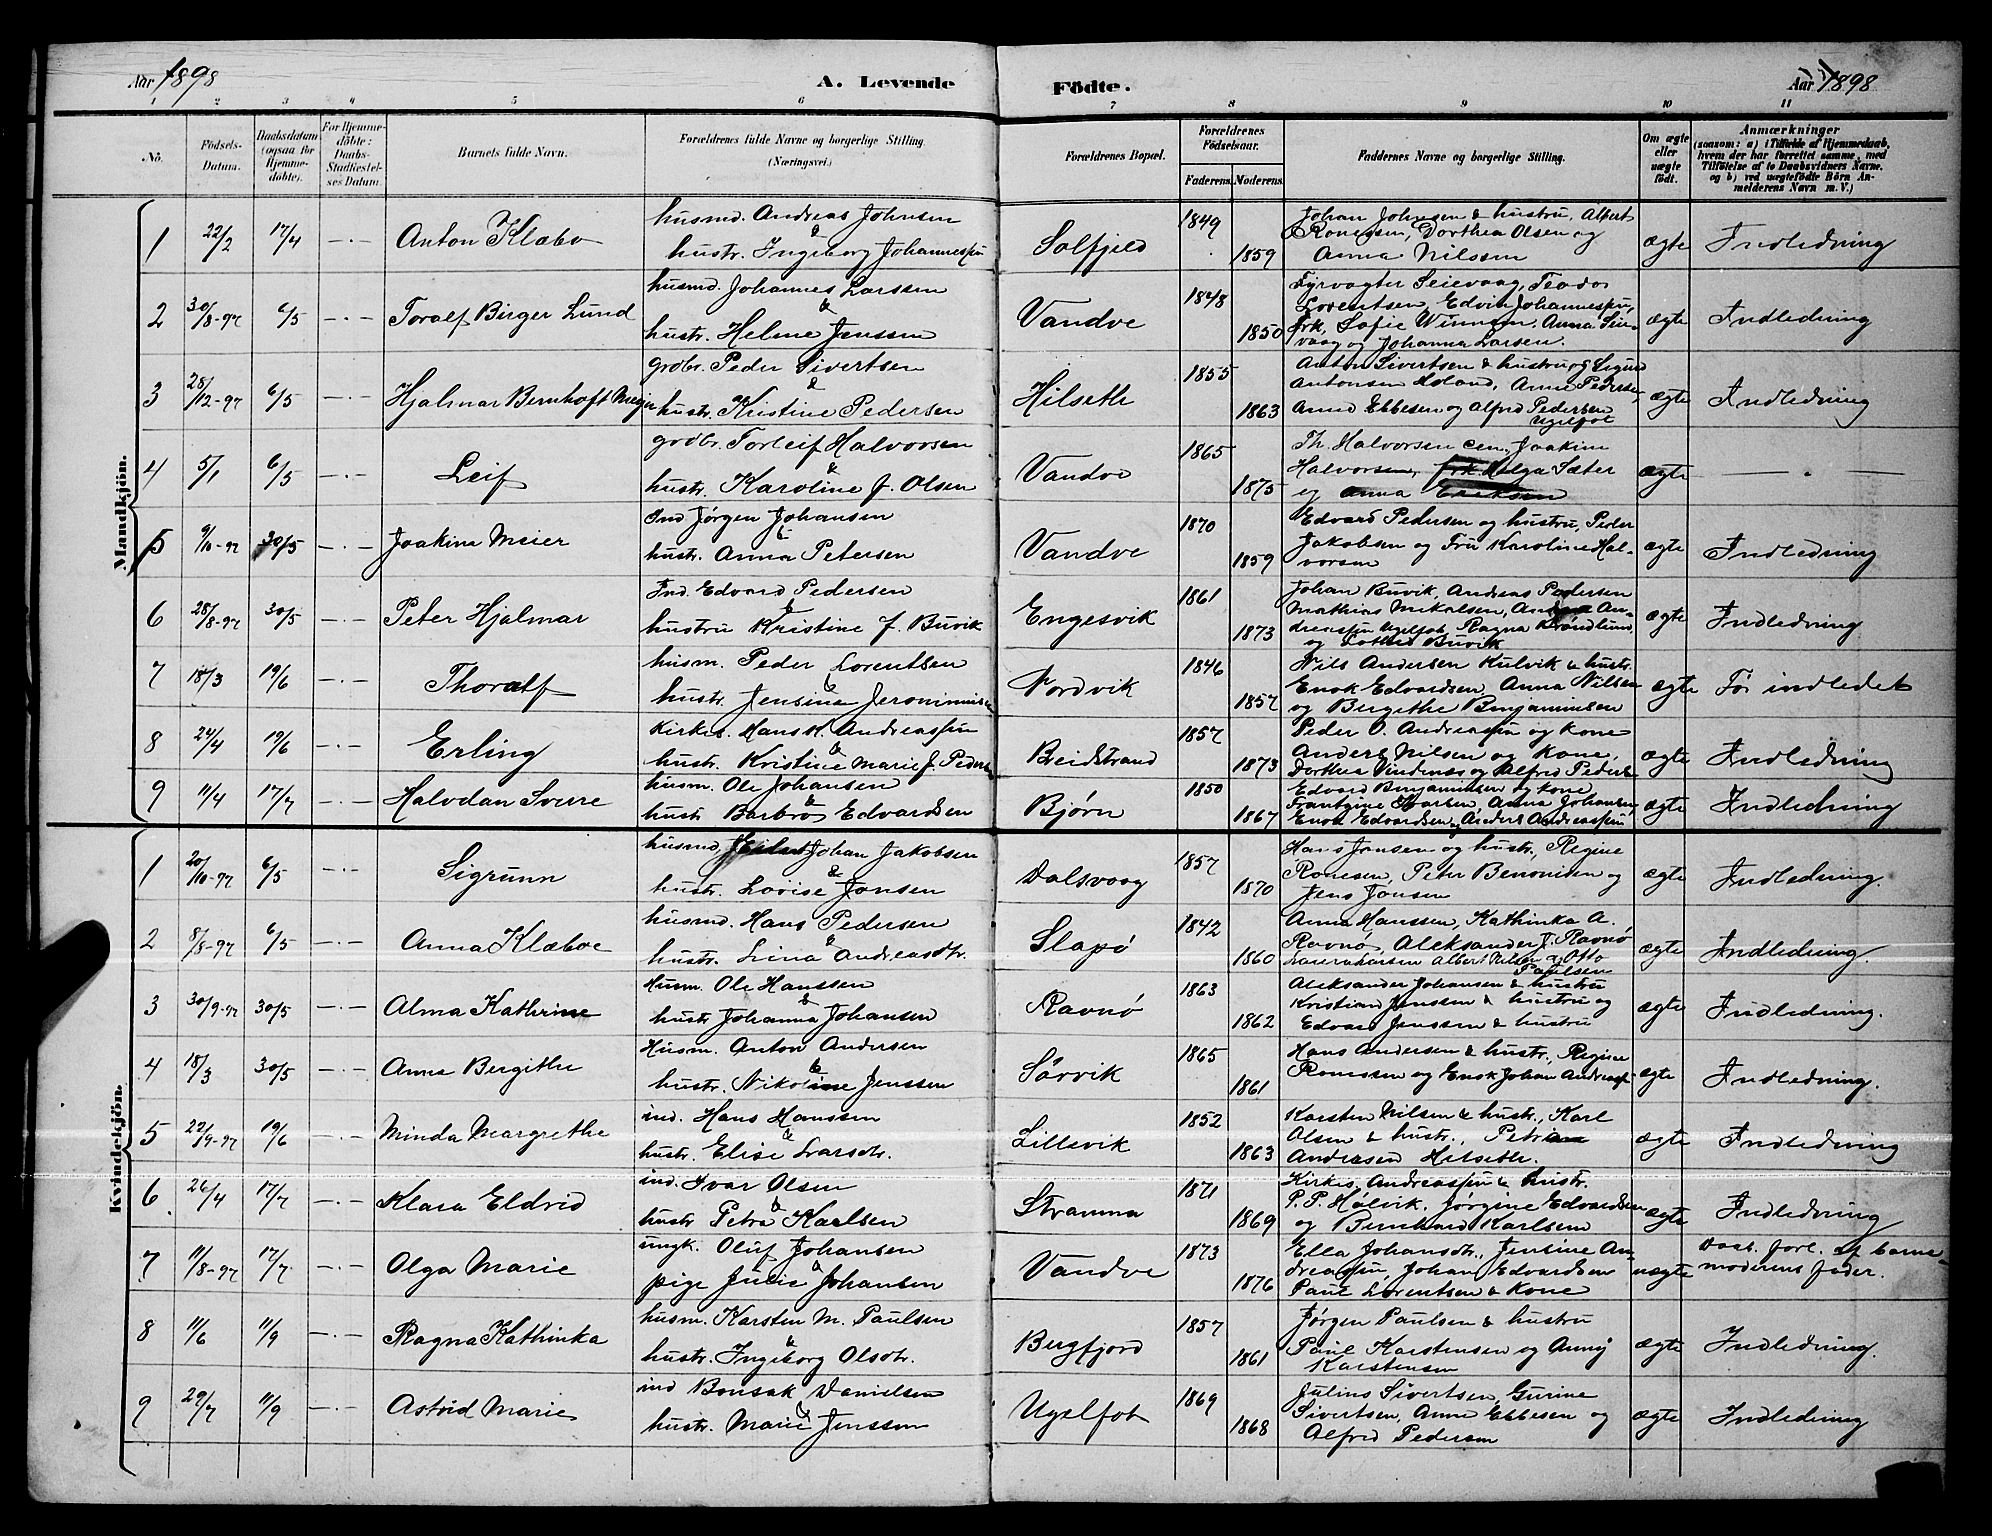 Aar 1898
A. Levende Födte.
Aar 1898
1 2 3 4 5 6 7 8 9 10 11
No.
Födsels-Datum.
Daabsdatum (ogsaa for Hjemmedöbte).
For Hjemmedöbte: Daabs-Stadfæstelses Datum.
Barnets fulde Navn.
Forældrenes fulde Navne og borgerlige Stilling. (Næringsvei.)
Forældrenes Bopæl.
Forældrenes Födselsaar. Faderens. Moderens.
Faddernes Navne og borgerlige Stilling.
Om ægte eller uægte födt.
Anmærkninger (saasom: a) i Tilfælde af Hjemmedaab, hvem der har forrettet samme, med Tilföielse af to Daabsvidners Navne, og b) ved uægtefödte Börn Anmelderens Navn m. V.)
Mandkjön.
1 22/2 17/4 -.- Anton Klæbo
husmd. Andreas Johnsen & hustr. Ingeborg Johannesen
Solfjeld 1849 1859
Johan Johnsen & hustru, Albert
Ronessen, Dorthea Olsen og
Anna Nilssen
ægte Indledning
2 30/8-97 6/5 -.- Toralf Birger Lund
husmd. Johannes Larssen & hustr. Helene Jenssen
Vandve 1848 1850
Fyrvogter Seievaag, Teodor
Lorentsen, Edvin Johannessen,
frk. Sofie Winnem, Anna Seie-
vaag og Johanna Larsen.
ægte Indledning
3 28/12-97 6/5 -.- Hjalmar Bernhoft Meyer
grdbr. Peder Sivertsen & hustr. Kristine Pedersen
Hilseth 1855 1863
Anton Sivertsen & hustru og Sigurd
Antonsen, Anne Pederse,
Anna Ebbesen og Alfred Pedersen
Ugelfot
ægte Indledning
4 5/1 6/5 -.- Leif
grdbr. Torleif Halvorsen & hustr. Karoline f. Olsen
Vandve 1865 1875
Th. Halvorsen sen. Joakim
Halvorsen, frk. Helga Sæter
og Anna Eriksen
ægte - . -
5 9/10-97 30/5 -.- Joakim Meier
Ind Jørgen Johansen & hustr. Anna Petersen
Vandve 1870 1859
Edvard Pedersen og hustru, Peder
Jakobsen og Fru Karoline Hal-
vorsen
ægte Indledning
6 28/8-97 30/5 -.- Peter Hjalmar
Ind. Edvard Pedersen & hustru Kristine f. Buvik
Engesvik 1861 1873
Johan Buvik, Andreas Pedersen
Mathias Mikalsen, An-
dreassen Ugelfot, Ragna
og Buvik
ægte Indledning
7 18/3 19/6 -.- Thoralf
husm. Peder Lorentsen & hustr. Jensine Jeroninnisen
Nordvik 1846 1857
Nils Andersen Kulvik & hustr.
Enok Edvardsen, Anna Nilsen
og Bergithe Benjaminsen
ægte Før indledet
8 24/4 19/6 -.- Erling
Kirkes. Hans K. Andreassen & hustr. Kristine Marie f. Peders
Breidstrand 1857 1873
Peder O. Andreassen og kone
Anders Nilsen og kone,
Dorthea Vindenæs og Alfred Peders
ægte Indledning
9 11/4 17/7 -.- Halvdan Sverre
husm. Ole Johansen & hustr Barbro Edvardsen
Bjørn 1850 1867
Edvard Benjaminsen og kone
Frantsine Ivarsen, Anna Johansen
Enok Edvardsen, Anders Andreassen
ægte Indledning
Kvindekjön.
1 20/10-97 6/5 -.- Sigrunn
husmd. Johan Jakobsen & hustr. Lovise Jonsen
Dalsvaag 1857 1870
Hans Jonsen og hustr., Regine
Ronesen, Peter Benonisen og
Jens Jonsen
ægte Indledning.
2 8/8-97 6/5 -.- Anna Klæboe
husmd. Hans Pedersen & hustr. Lina Andreasdtr.
Slapø 1842 1860
Anna Hanssen, Kathinka A.
Ravnø, Aleksander J. Ravnø
Laura Larsen Albert Nilsen og Otto
Paulsen
ægte Indledning.
3 30/9-97 30/5 -.- Alma Kathrine
Husm. Ole Hanssen & hustr Johanna Johansen
Ravnø 1863 1862
Aleksander Johansen & hustru
Kristian Jenssen & hustru og
Edvard Jenssen & hustru
ægte Indledning.
4 18/3 30/5 -.- Anna Bergithe
Husm. Anton Andersen & hustr. Nikoline Jenssen
Sørvik 1865 1861
Hans Andersen & hustr., Regine
Ronessen og Enok Johan Andreass
ægte Indledning.
5 22/9-97 19/6 -.- Minda Margrethe
ind. Hans Hanssen & hustr. Elise Larsdtr.
Lillevik 1852 1863
Karsten Nilsen & hustr., Karl
Olsen & hustr., Petra
Andresen Hilseth.
ægte Indledning
6 26/4 17/7 -.- Klara Eldrid
ind. Ivar Olsen & hustr Petra Karlsen
Stramna 1871 1869
Kirkes. Andreassen & hustr.
P. P. Hølvik, Jørgine Edvardsen
og Bernhard Karlsen
ægte Indledning
7 11/8-97 17/7 -.- Olga Marie
ungk. Oluf Johansen & pige Julie Johansen
Vandve 1873 1876
Ella Johansdtr., Jensine An-
dreassen, Johan Edvardsen
Paul Lorentsen & kone
uægte Daab. forl. af barne-
moderens fader.
8 11/6 11/9 -.- Ragna Kathinka
husm. Karsten M. Paulsen & hustr. Ingeborg Olsdtr.
Bugfjord 1857 1861
Jørgen Paulsen & hustru
Paul Karstensen og Anny
Karstensen
ægte Indledning.
9 29/7 11/9 -.- Astrid Marie
ind Bonsak Danielsen & hustr. Marie Jenssen
Ugelfot 1869 1868
Julius Sivertsen, Gurine
Sivertsen, Anne Ebbesen og
Alfred Pedersen
ægte Indledning